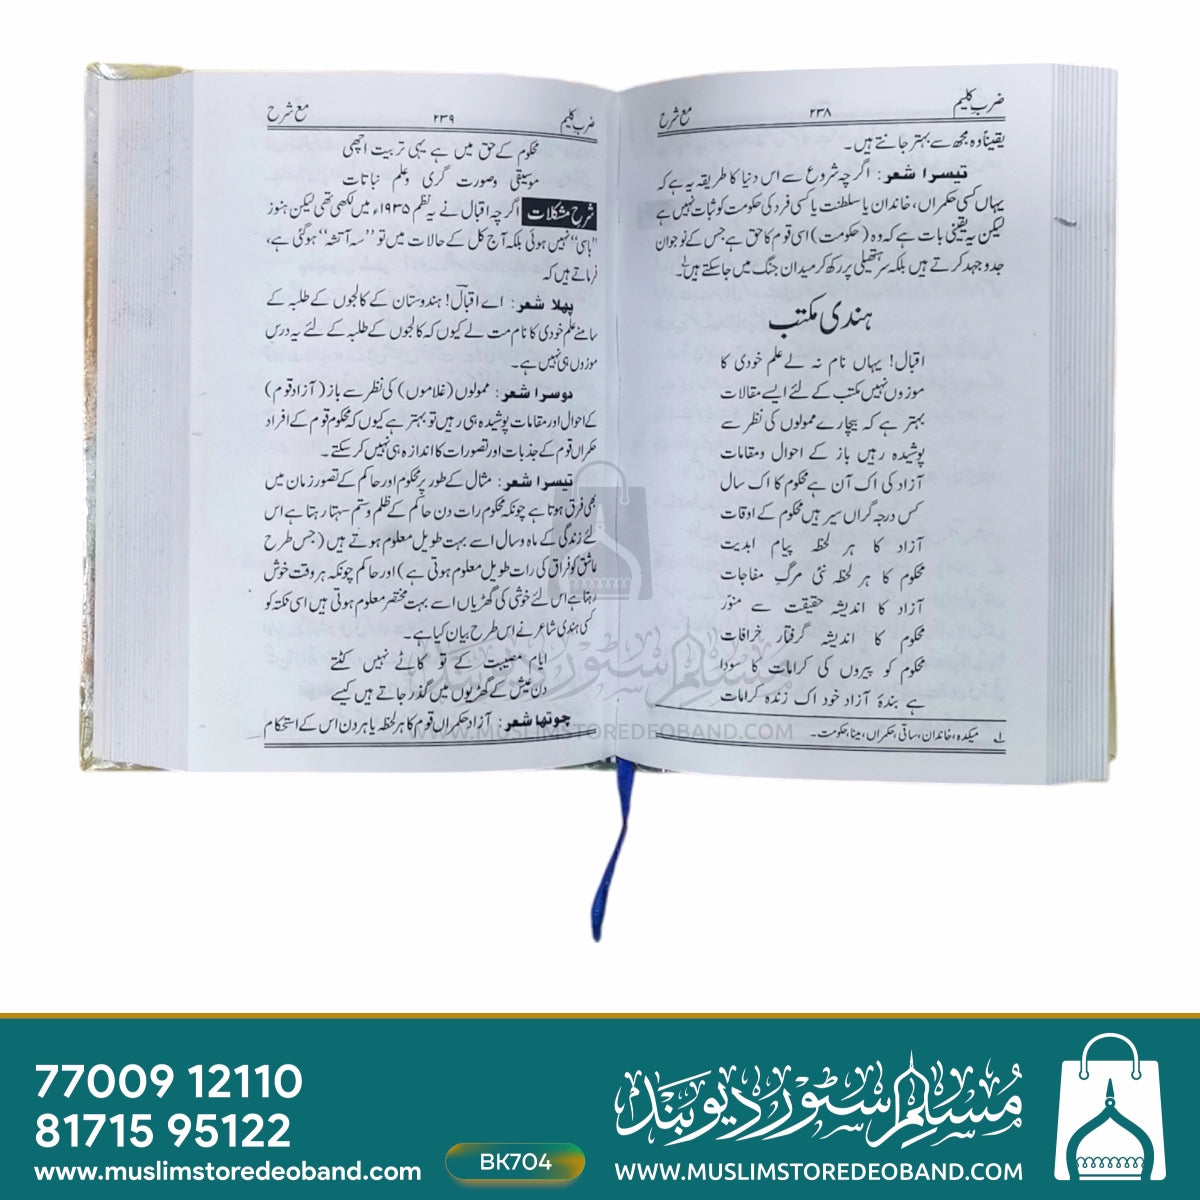 ضربِ کلیم ۲۳۸ مع شرح
یقیناً وہ مجھ سے بہتر جانتے ہیں۔
تیسرا شعر: اگرچہ شروع سے اس دنیا کا طریقہ یہ ہے کہ
یہاں کسی حکمراں، خاندان یا سلطنت یا کسی فرد کی حکومت کو ثبات نہیں ہے
لیکن یہ یقینی بات ہے کہ وہ (حکومت) اسی قوم کا حق ہے جس کے نوجوان
جدوجہد کرتے ہیں بلکہ سر ہتھیلی پر رکھ کر میدان جنگ میں جاسکتے ہیں۱۔
ہندی مکتب
اقبال! یہاں نام نہ لے علم خودی کا
موزوں نہیں مکتب کے لئے ایسے مقالات
بہتر ہے کہ بیچارے ممولوں کی نظر سے
پوشیدہ رہیں باز کے احوال ومقامات
آزاد کی اک آن ہے محکوم کا اک سال
کس درجہ گراں سیر ہیں محکوم کے اوقات
آزاد کا ہر لحظہ پیام ابدیت
محکوم کا ہر لحظہ نئی مرگِ مفاجات
آزاد کا اندیشہ حقیقت سے منوّر
محکوم کا اندیشہ گرفتار خرافات
محکوم کو پیروں کی کرامات کا سودا
ہے بندۂ آزاد خود اک زندہ کرامات
۱ میکدہ، خاندان، ساقی، حکمراں، مینا، حکومت۔
ضربِ کلیم ۲۳۹ مع شرح
محکوم کے حق میں ہے یہی تربیت اچھی
موسیقی وصورت گری وعلم نباتات
شرح مشکلات اگرچہ اقبال نے یہ نظم ۱۹۳۵ء میں لکھی تھی لیکن ہنوز
”باسی“ نہیں ہوئی بلکہ آج کل کے حالات میں تو ”سہ آتشہ“ ہوگئی ہے،
فرماتے ہیں کہ
پہلا شعر: اے اقبالؔ! ہندوستان کے کالجوں کے طلبہ کے
سامنے علم خودی کا نام مت لے کیوں کہ کالجوں کے طلبہ کے لئے یہ درس
موزوں ہی نہیں ہے۔
دوسرا شعر: ممولوں (غلاموں) کی نظر سے باز (آزاد قوم)
کے احوال اور مقامات پوشیدہ ہی رہیں تو بہتر ہے کیوں کہ محکوم قوم کے افراد
حکمراں قوم کے جذبات اور تصورات کا اندازہ ہی نہیں کرسکتے۔
تیسرا شعر: مثال کے طور پر محکوم اور حاکم کے تصور زمان میں
بھی فرق ہوتا ہے چونکہ محکوم رات دن حاکم کے ظلم وستم سہتا رہتا ہے اس
لئے زندگی کے ماہ وسال اسے بہت طویل معلوم ہوتے ہیں (جس طرح
عاشق کو فراق کی رات طویل معلوم ہوتی ہے) اور حاکم چونکہ ہر وقت خوش
رہتا ہے اس لئے خوشی کی گھڑیاں اسے بہت مختصر معلوم ہوتی ہیں اسی نکتہ کو
کسی ہندی شاعر نے اس طرح بیان کیا ہے۔
ایام مصیبت کے تو کاٹے نہیں کٹتے
دن عیش کے گھڑیوں میں گذر جاتے ہیں کیسے
چوتھا شعر: آزاد حکمراں قوم کا ہر لحظہ یا ہر دن اس کے استحکام
مسلم سٹور دیوبند
WWW.MUSLIMSTOREDEOBAND.COM
77009 12110
81715 95122
www.muslimstoredeoband.com
BK704
مسلم سٹور دیوبند
WWW.MUSLIMSTOREDEOBAND.COM